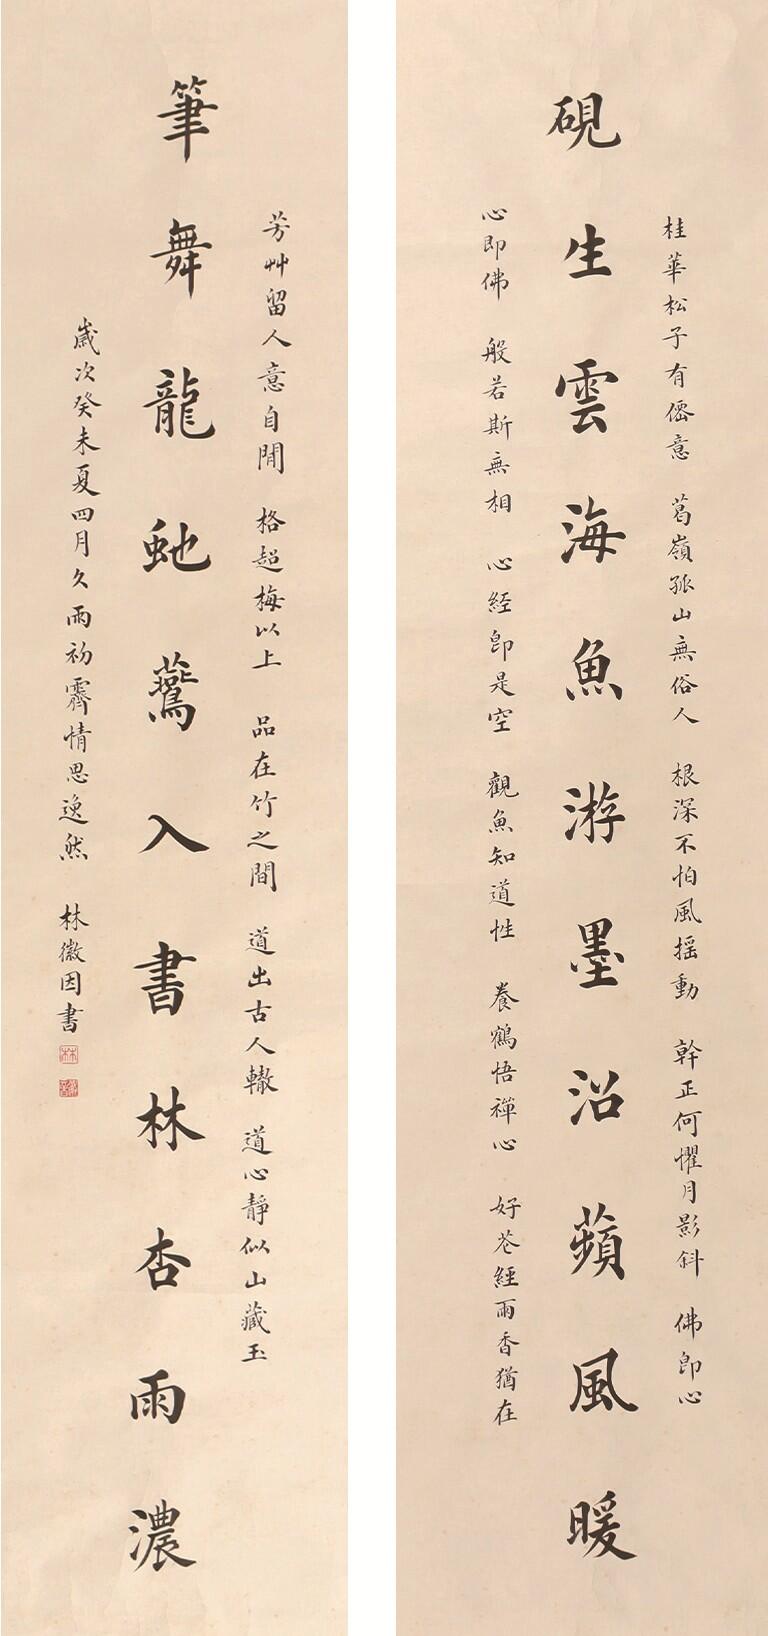 桂華松子有僊意 葛嶺孤山無俗人 根深不怕風搖動 幹正何懼月影斜 佛即心
硯生雲海魚游墨沼蘋風暖
心即佛 般若斯無相 心経即是空 觀魚知道性 養鶴悟禪心 好花經雨香猶在
芳艸留人意自閒 格超梅以上 品在竹之間 道出古人轍 道心靜似山藏玉
筆舞龍虵鶯入書林杏雨濃
歲次癸未夏四月久雨初霽情思逸然 林徽因書